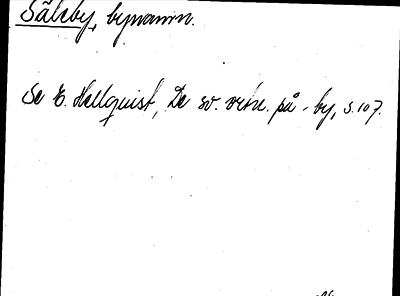 Sälsby, bynamn.
Se E. Hellquist, De sv. ortn. på -by, s. 107.